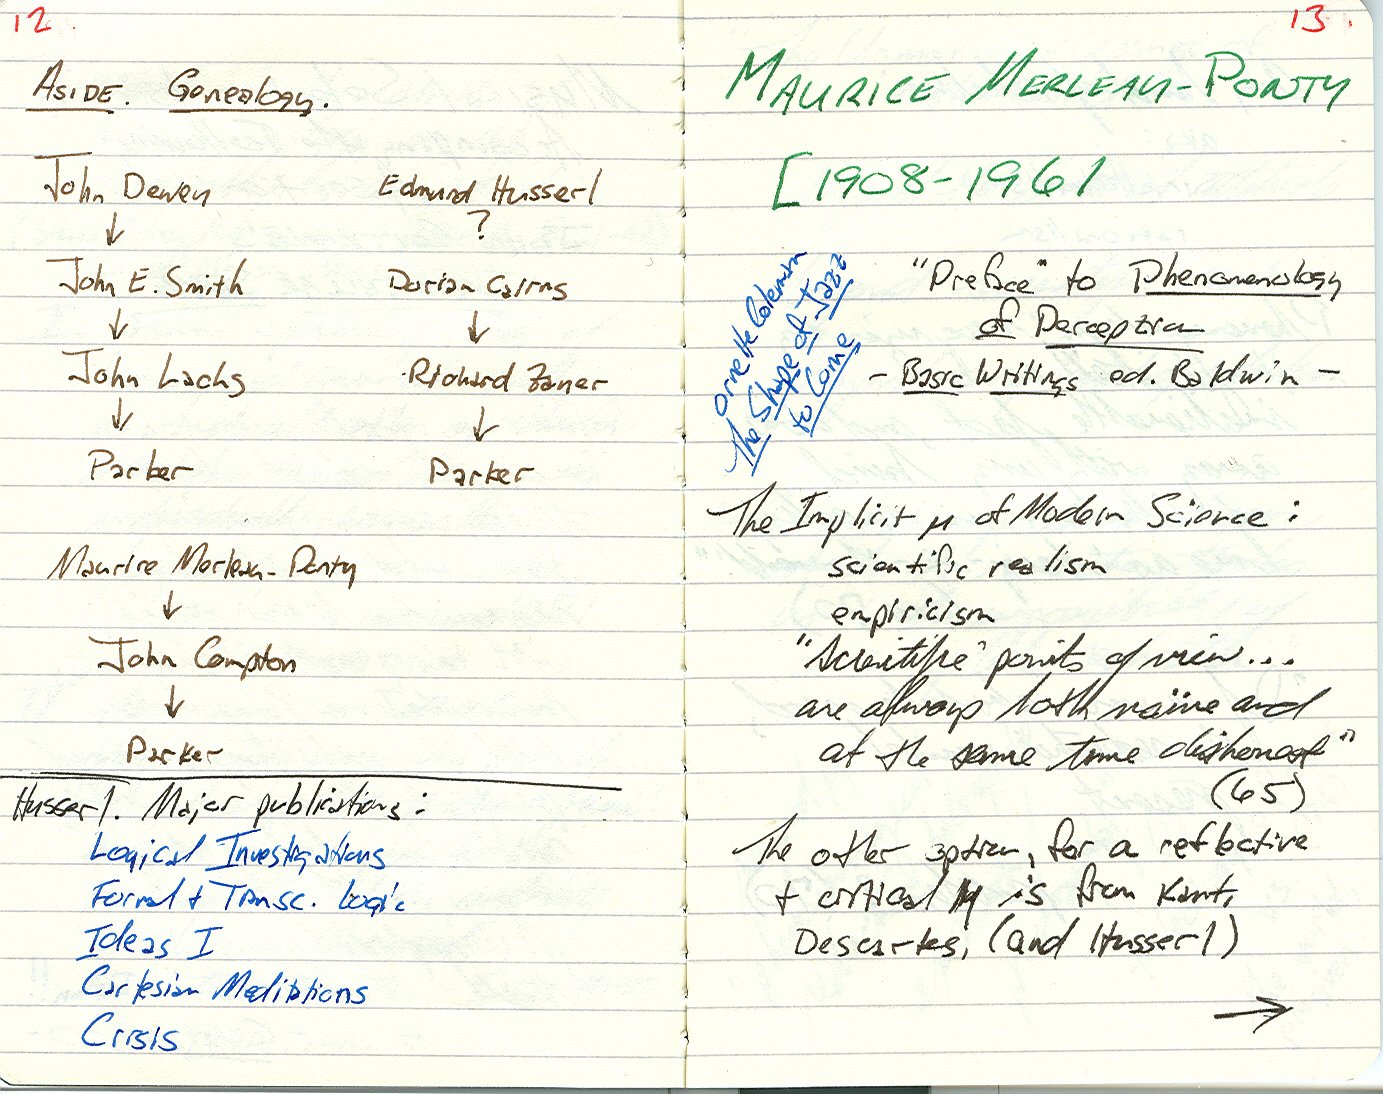 12.
ASIDE. Genealogy.
John Dewey
↓
John E. Smith
↓
John Lachs
↓
Parker
Edmund Husserl
?
Dorian Cairns
↓
Richard Zaner
↓
Parker
Maurice Merleau-Ponty
↓
John Compton
↓
Parker
Husserl. Major publications:
Logical Investigations
Formal + Transc. Logic
Ideas I
Cartesian Meditations
Crisis
13.
MAURICE MERLEAU-PONTY
[1908-1961
"Preface" to Phenomenology
of Perception
- Basic Writings ed. Baldwin -
Ornette Coleman
The Shape of Jazz
to Come
The Implicit μ of Modern Science:
scientific realism
empiricism
"Scientific points of view...
are always both naïve and
at the same time dishonest"
(65)
The other option, for a reflective
+ critical μ is from Kant,
Descartes, (and Husserl)
→